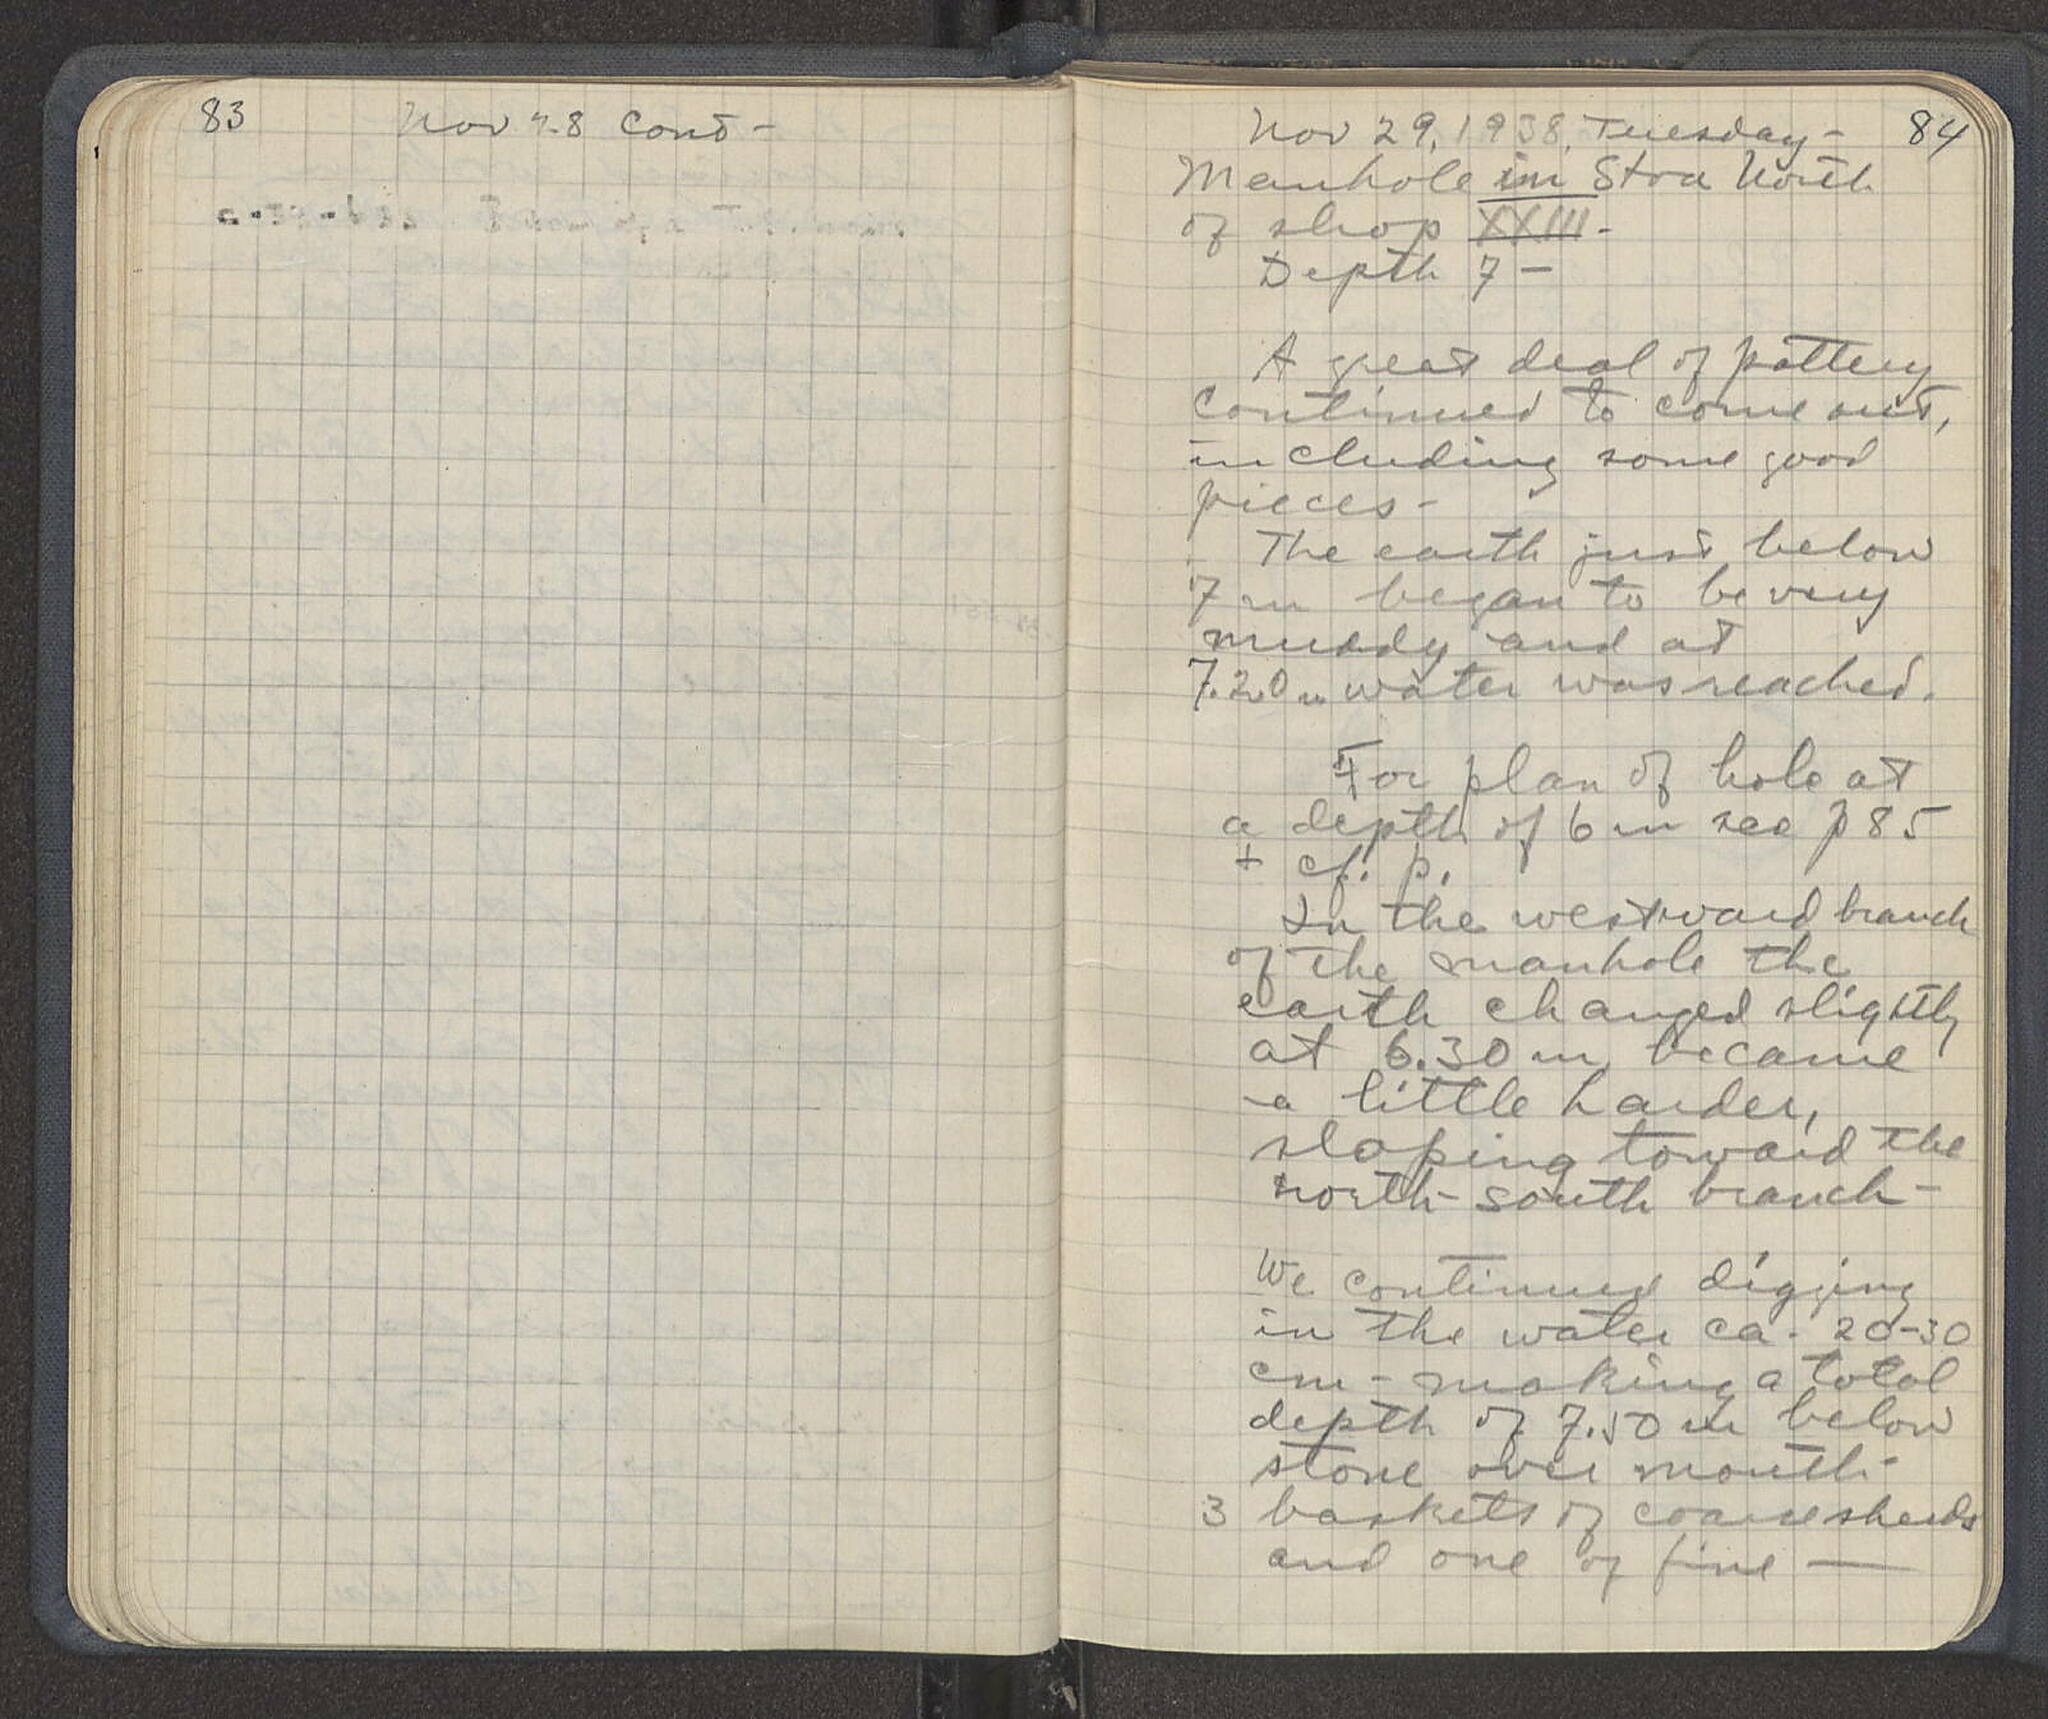 83
Nov 28 Cont -
Nov 29, 1938, Tuesday -
84
Manhole in Stoa North
of shop XXIII -
Depth 7 -
A great deal of pottery
continued to come out,
including some good
pieces -
The earth just below
7 m began to be very
muddy and at
7.20 m water was reached.
For plan of hole at
a depth of 6 m see p 85
+ cf. p.
In the westward branch
of the manhole the
earth changed slightly
at 6.30 m, became
a little harder,
sloping toward the
north-south branch -
We continued digging
in the water ca. 20-30
cm - making a total
depth of 7.50 m below
stone over mouth -
3 baskets of coarse sherds
and one of fine —